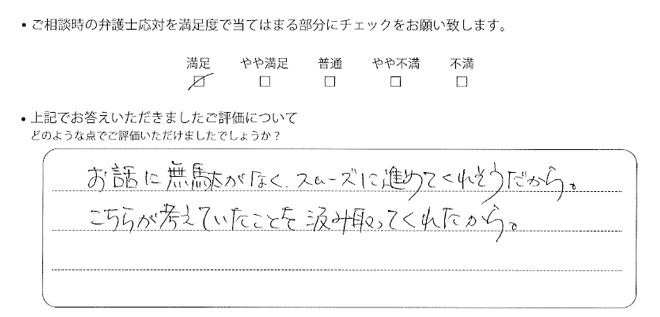 ・ご相談時の弁護士応対を満足度で当てはまる部分にチェックをお願い致します。
満足 やや満足 普通 やや不満 不満
・上記でお答えいただきましたご評価について
どのような点でご評価いただけましたでしょうか？
お話に無駄がなく、スムーズに進めてくれそうだから。
こちらが考えていたことを汲み取ってくれたから。